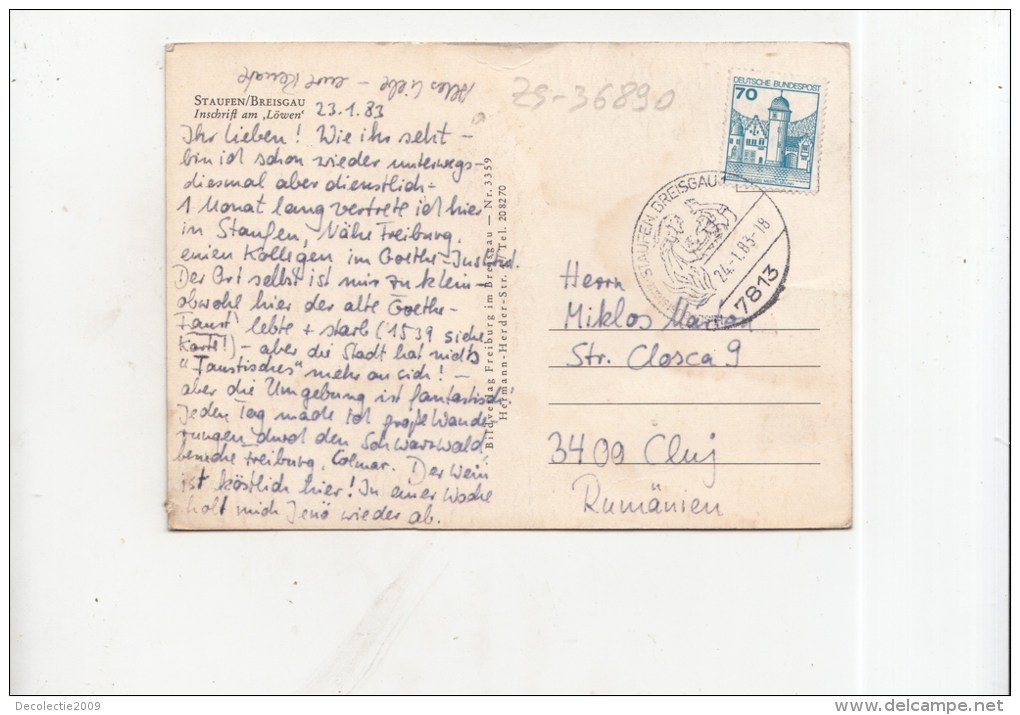 Alles Liebe – eure Renate
STAUFEN/BREISGAU
Inschrift am ‚Löwen‘
23.1.83
Ihr Lieben! Wie ihr seht –
bin ich schon wieder unterwegs –
diesmal aber dienstlich –
1 Monat lang vertrete ich hier
in Staufen, Nähe Freiburg,
einen Kollegen im Goethe-Institut.
Der Ort selbst ist mir zu klein –
obwohl hier der alte Goethe-
Faust lebte + starb (1539 siehe
Karte!) – aber die Stadt hat nichts
"Faustisches" mehr an sich! –
aber die Umgebung ist fantastisch,
Jeden Tag mache ich große Wande-
rungen durch den Schwarzwald,
besuche Freiburg, Colmar. Der Wein
ist köstlich hier! In einer Woche
holt mich Jenö wieder ab.
Bildverlag Freiburg im Breisgau — Nr. 3359
Hermann-Herder-Str. 4 Tel. 20 82 70
ZS-36890
DEUTSCHE BUNDESPOST
70
STAUFEN, BREISGAU
24.-1.83-18
7813
Herrn
Miklos Márton
Str. Closca 9
3400 Cluj
Rumänien
Decolectie2009
delcampe.net